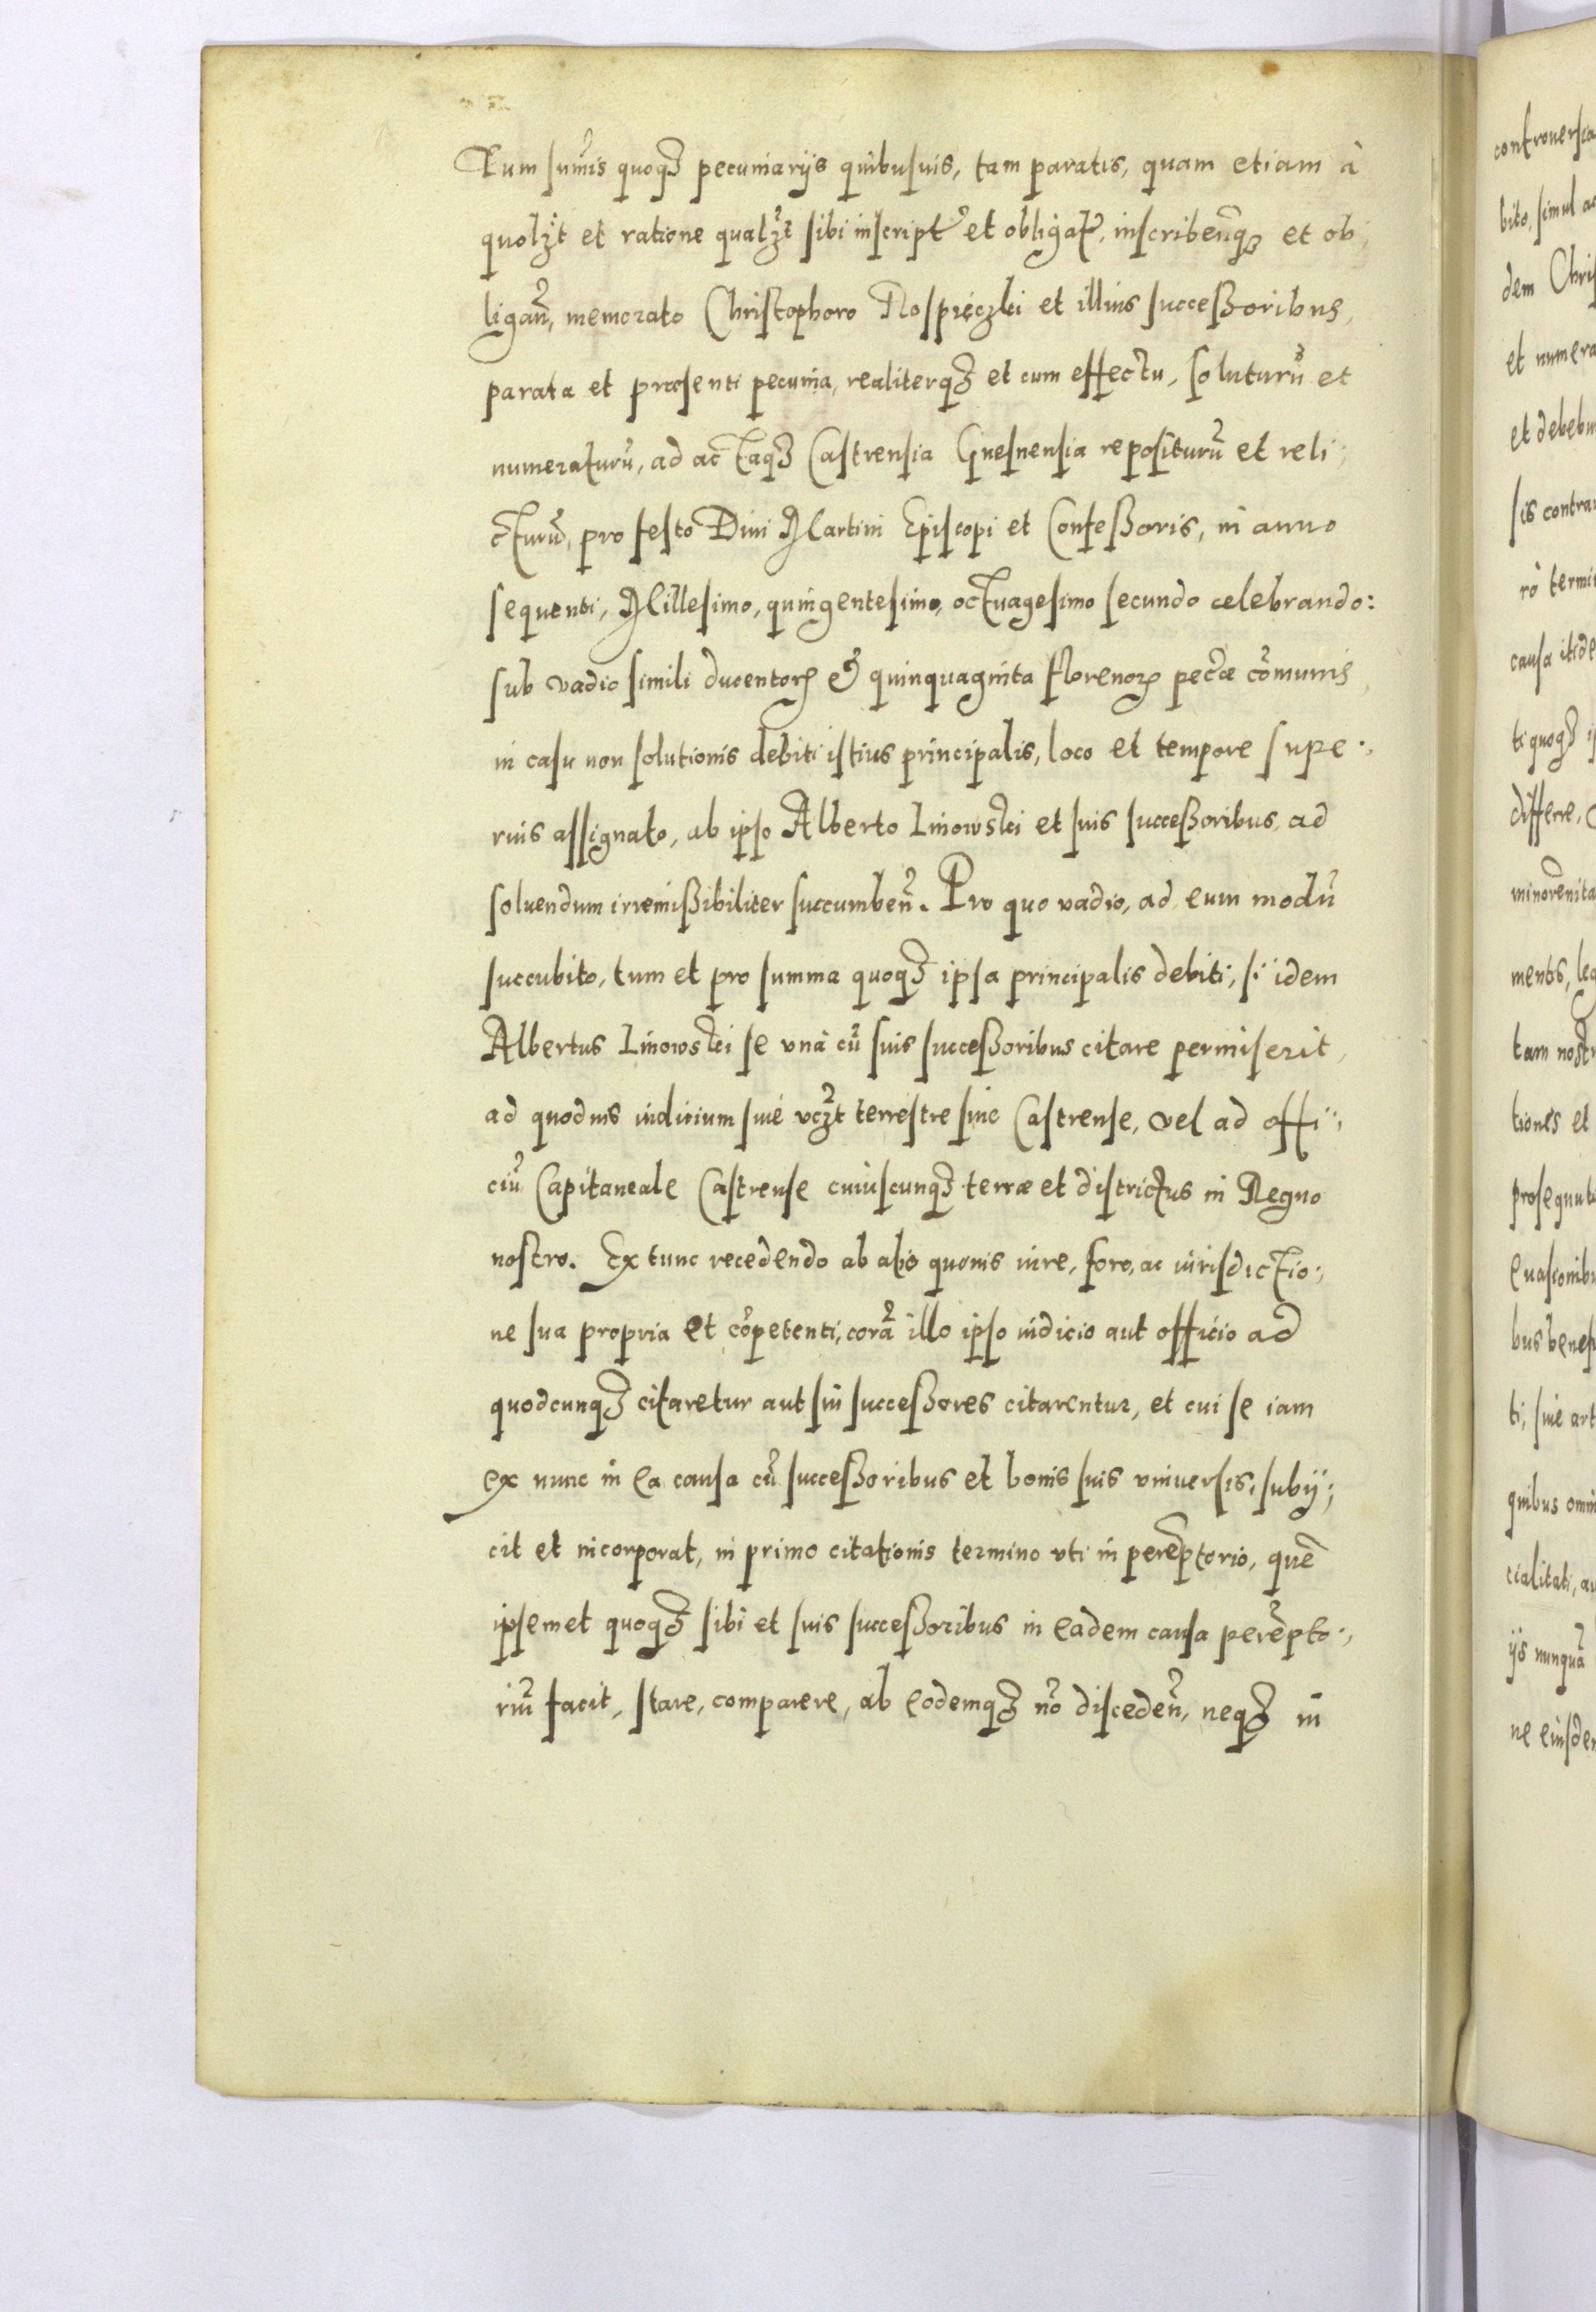 Tum sum̃is quoqꝫ pecuniarijs quibusuis, tam paratis, quam etiam à
quolꝫt et ratione qualꝫt sibi inscript̃ et obligat̃, inscribeñqꝫ et ob;
ligañ, memorato Christophoro Rospięczki et illius successoribus,
parata et præsenti pecunia, realiterqꝫ et cum effectu, soluturũ et
numeraturũ, ad actaqꝫ Castrensia Gnesnensia repositurũ et reli;
cturũ, pro festo Diui Martini Episcopi et Confessoris, in anno
sequenti, Millesimo, quingentesimo, octuagesimo secundo celebrando:
sub vadio simili ducentoꝝ & quinquaginta florenoꝝ pec̃æ cõmunis,
in casu non solutionis debiti istius principalis, loco et tempore supe:,
rius assignato, ab ipso Alberto Linowski et suis successoribus, ad
soluendum irremissibiliter succumbeñ. Pro quo vadio, ad eum modũ
succubito, tum et pro summa quoqꝫ ipsa principalis debiti, si idem
Albertus Linowski se vnà cũ suis successoribus citare permiserit,
ad quoduis iudicium siue vcꝫt terrestre siue Castrense, vel ad offi;
ciũ Capitaneale Castrense cuiuscunqꝫ terræ et districtus in Regno
nostro. Ex tunc recedendo ab alio quouis iure, foro, ac iurisdictio;
ne sua propria et cõpetenti, corã illo ipso iudicio aut officio ad
quodcunqꝫ citaretur aut sui successores citarentur, et cui se iam
ex nunc in ea causa cũ successoribus et bonis suis vniuersis, subij;
cit et incorporat, in primo citationis termino vti in perẽptorio, quẽ
ipsemet quoqꝫ sibi et suis successoribus in eadem causa perẽpto:,
riũ facit, stare, comparere, ab eodemqꝫ nõ discedeñ, neqꝫ in
controuersia
bito, simul ac
dem Chris
et numera
et debebu
sis contra
rò termi
causa itide
ti quoqꝫ ip
differre,
minorẽnita
mentis, leg
tam nostr
tiones et
prosequuti
euasionibu
bus benefi
ti, siue art
quibus omni
cialitati, au
ijs nunquã
ne eiusdem